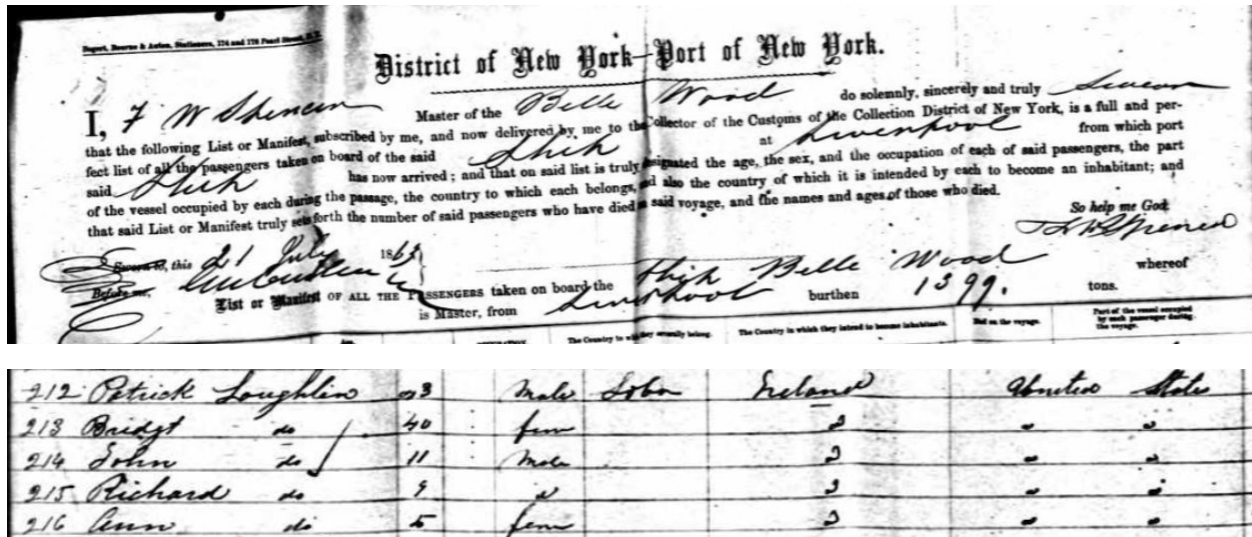 Bogert, Bourne & Auten, Stationers, 174 and 176 Pearl Street, N.Y.
District of New York—Port of New York.
I, F W Spencer Master of the Belle Wood do solemnly, sincerely and truly Swear
that the following List or Manifest, subscribed by me, and now delivered by me to the Collector of the Customs of the Collection District of New York, is a full and per-
fect list of all the passengers taken on board of the said Ship at Liverpool from which port
said Ship has now arrived; and that on said list is truly designated the age, the sex, and the occupation of each of said passengers, the part
of the vessel occupied by each during the passage, the country to which each belongs, and also the country of which it is intended by each to become an inhabitant; and
that said List or Manifest truly sets forth the number of said passengers who have died on said voyage, and the names and ages of those who died.
So help me God.
F W Spencer
Sworn to, this 21 July 186
Before me,
List or Manifest OF ALL THE PASSENGERS taken on board the Ship Belle Wood whereof
is Master, from Liverpool burthen 1399. tons.
The Country to which they severally belong. The Country in which they intend to become inhabitants. Died on the voyage. Part of the vessel occupied by each passenger during the voyage.
212 Patrick Loughlin Male Labr Ireland United State
213 Bridgt do 40 fem " " "
214 John do 11 Male " " "
215 Richard do 9 " " " "
216 Ann do 5 fem " " "